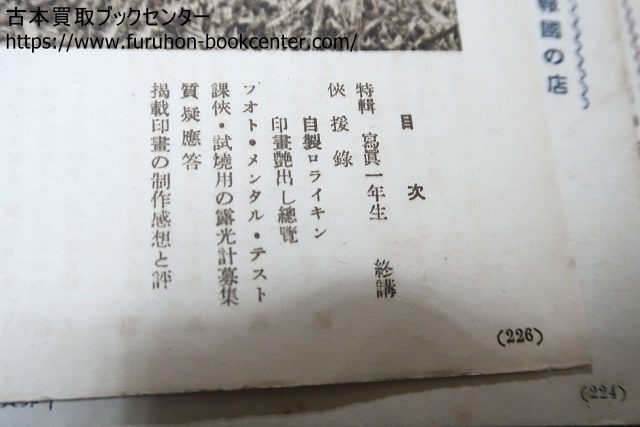 古本買取ブックセンター
https://www.furuhon-bookcenter.com/
報國の店
目次
特輯 寫眞一年生 終講
俠援錄
自製ロライキン
印畫艶出し總覽
フオト・メンタル・テスト
課俠・試燒用の露光計募集
質疑應答
揭載印畫の制作感想と評
(226)
(224)